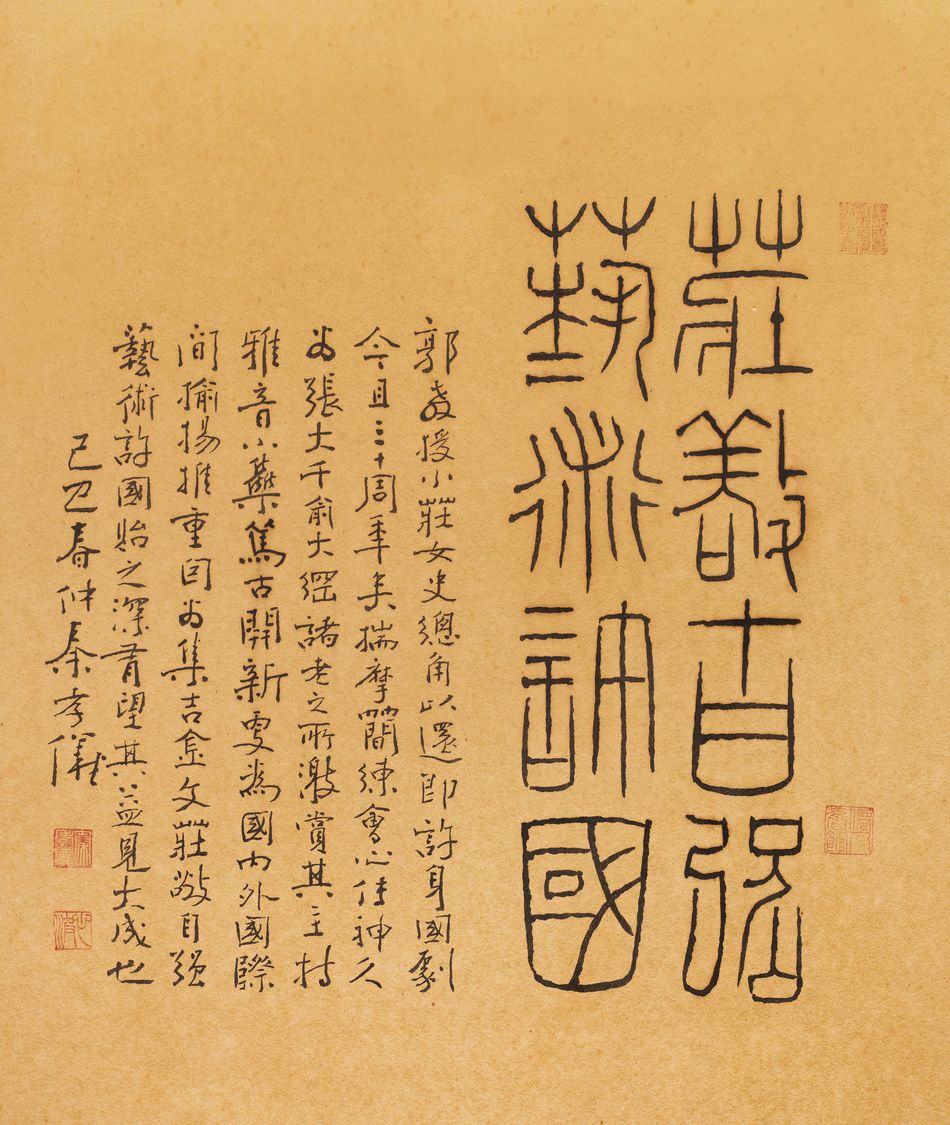 莊敬自強
藝術許國
郭教授小莊女史總角以還即許身國劇
今且三十周年矣揣摩簡練會心傳神久
為張大千俞大綱諸老之所激賞其主持
雅音小集篤古開新為國內外國際
間揄揚推重因為集吉金文莊敬自強
藝術許國貽之深有望其益見大成也
己卯春仲秦孝儀